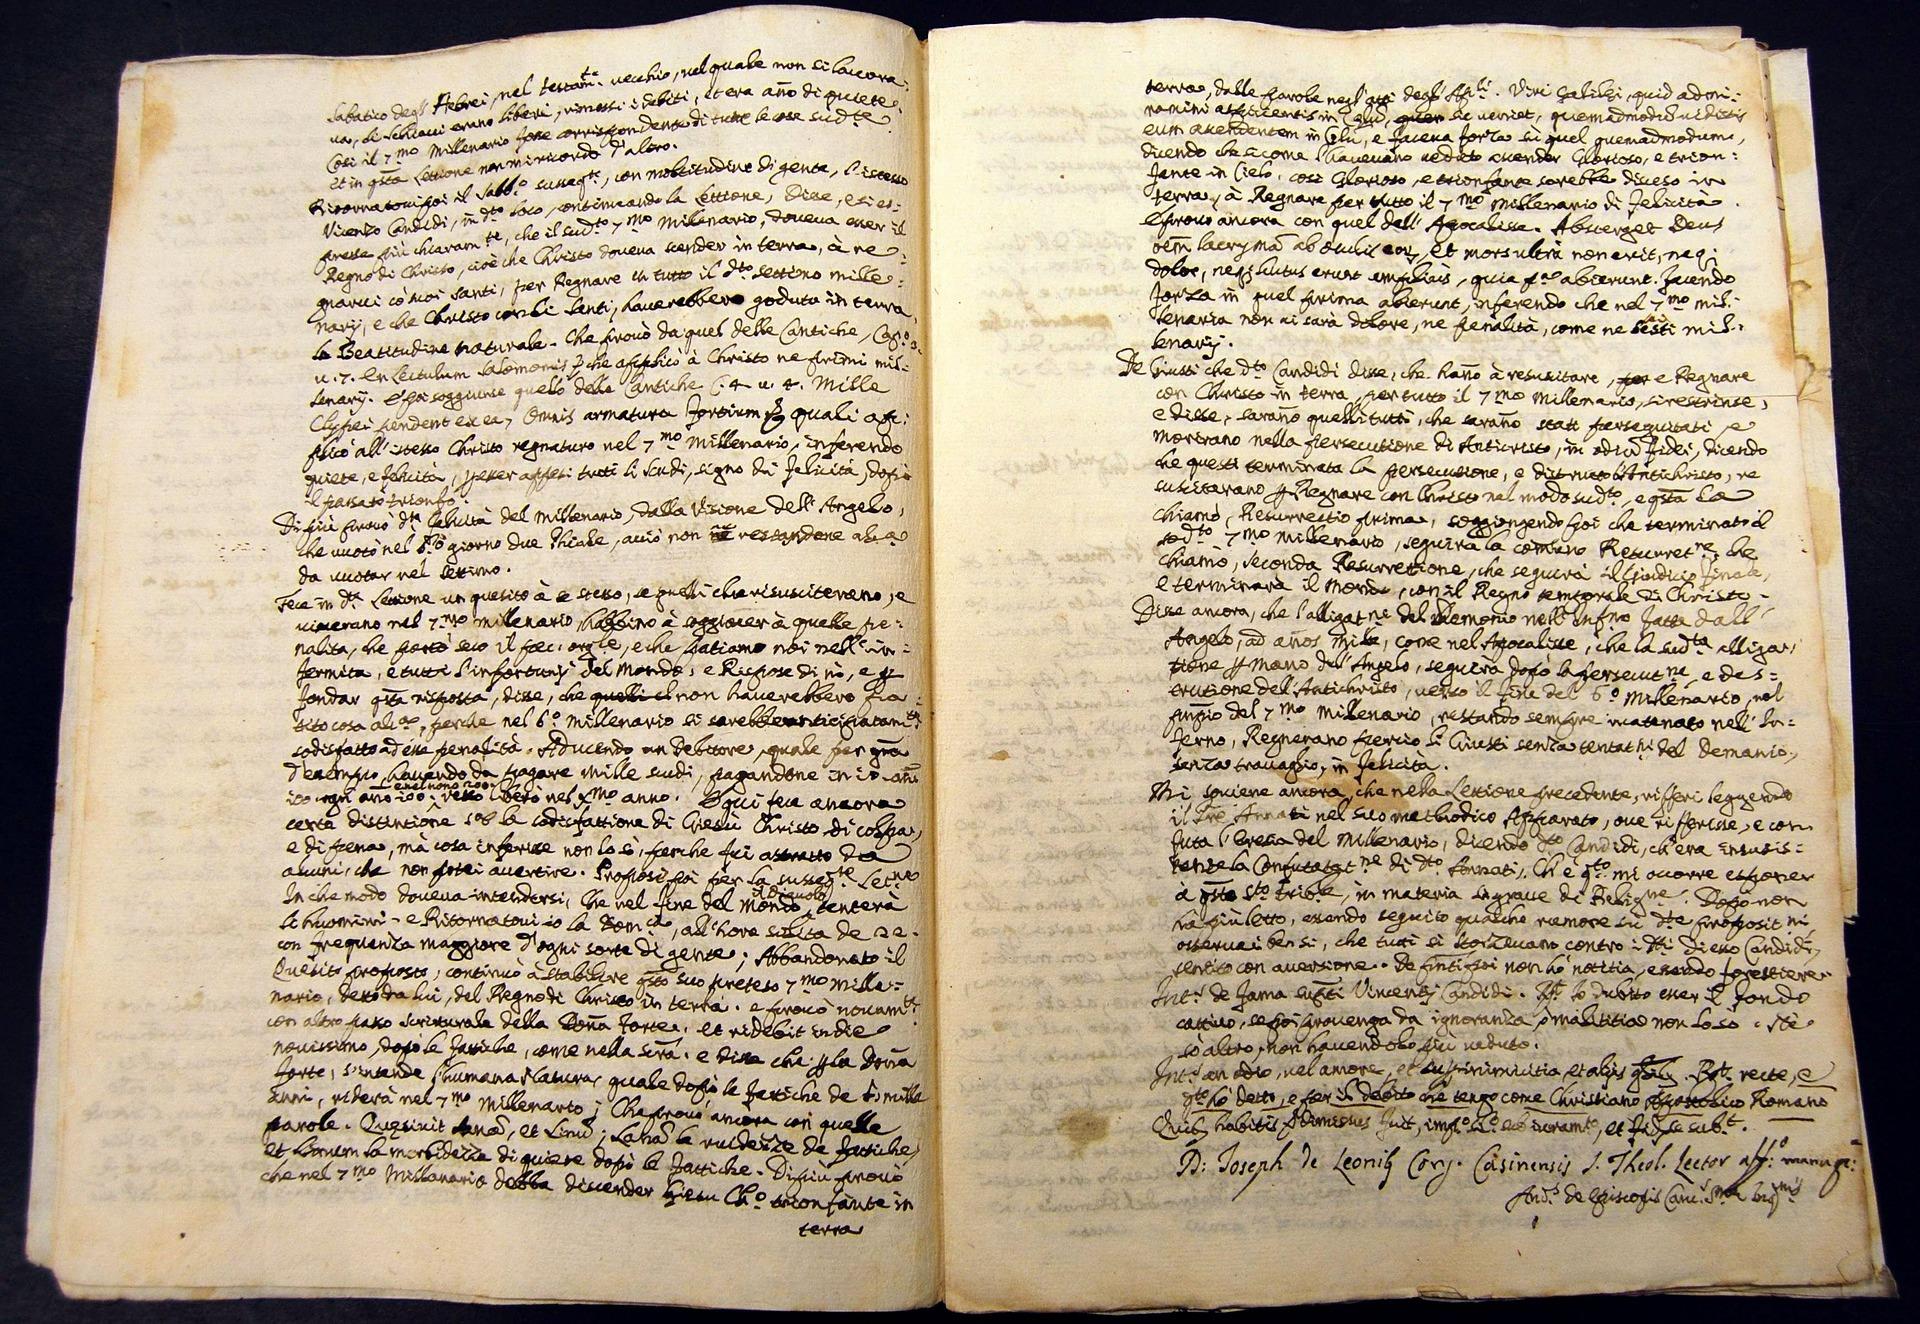 sabatico degl' Hebrei, nel testam.te vecchio, nel quale non si lavora-
va, li schiavi erano liberi, rimessi i debiti, et era año di quiete,
Così il 7.mo Millenario fosse corrispondente di tutte le cose sud.te
et in q̃sta Lettione non mi ricordo d'altro.
Ritornatovi poi il Sabb.o susseg.te, con moltitudine di gente, l'istesso
Vicenzo Candidi, in d.to loco, continuando la Lettione, Disse, e si es-
presse più chiaram.te, che il sud.to 7.mo Millenario, doveva esser il
Regno di Christo, cioè che Christo doveva scender in terra, à re-
gnarvi cò suoi Santi, per Regnare in tutto il d.to settimo mille-
nario, e che Christo con li Santi, haverebbero goduta in terra
la Beatitudine naturale. Che provò da quel delle Cantiche, Cap.o 3.
u. 7. En Lectulum Salomonis che applicò à Christo ne primi mil-
lenarij. E poi soggiunse quello delle Cantiche C. 4. u. 4. Mille
Clypei pendent ex ea, Omnis armatura fortium quali ap-
plicò all'istesso Christo regnaturo nel 7.mo Millenario, inferendo
quiete, e felicità, p esser appesi tutti li scudi, signo di felicità, dopo
il passato trionfo.
Di più provò d.ta felicità del Millenario, dalla Visione dell'Angelo,
che vuotò nel 6.to giorno due Phiale, acciò non restandone altra
da vuotar nel settimo.
Fece in d.ta Lettione un quesito à se stesso, se quelli che risusciterano, e
viverano nel 7.mo millenario, habbino à soggiacer à quelle pe-
nalità, che portò seco il pecc. orig.le, e che patiamo noi nell'in-
fermità, e tutti l'infortunij del Mondo, e Rispose di nò, e p
fondar q̃sta risposta, disse, che quelli non haverebbero pa-
tito cosa alc.a, perche nel 6.o Millenario si sarebbe anticipatam.te
sodisfatto ad esse penalità. Adducendo un Debitore, quale per
d'esempio, havendo da pagare mille scudi, pagandone in 10 añi
100 ogni año e nel nono 200. resta liberò nel X.mo anno. E qui fece ancora
certa distintione sob la sodisfattione di Giesù Christo di colpa,
e di pena, mà cosa inferisse non lo sò, perche fui astratto da
alcuni, che non potei avertire. Propose poi per la susseg.te Let.ne
In che modo doveva intendersi, che nel fine del mondo il Diavolo tenterà
le huomini. e Ritornatovi io la Dom.ca, all'hore solita de 22.
con frequenza maggiore d'ogni sorte di gente; Abbandonato il
Quesito proposto, continuò à stabilire q̃sto suo preteso 7.mo Mille-
nario, detto da lui, del Regno di Christo in terra. e provò novam.te
con altro passo scritturale della Doña forte. et ridebit in die
novissimo, dopo le fattiche, come nella scrã. e disse che p la Doña
forte, s'intende l'humana Natura, quale dopo le fattiche de 6. milla
anni, riderà nel 7.mo Millenario; Che provò ancora con quelle
parole. Quęsivit lanã, et Linũ; Lahad la ruidezze de fattiche,
et Linum la morbidezza di quiete dopò le fattiche. Di più provò
che nel 7.mo Millenario debba discender Giesu Ch.o trionfante in
terra
terra, dalle parole negl'atti degl'Ap.li. Viri Galilęi, quid admi-
ramini aspicientes in Cęlũ, sic veniet, quemadmodũ vidistis
eum ascendentem in Cęlũ, e faceva forza sù quel quemadmodum,
dicendo che sicome l'havevano veduto ascender Glorioso, e trion-
fante in Cielo, così Glorioso, e trionfante sarebbe disceso in
terra, à Regnare per tutto il 7.mo Millenario di felicità.
E provò ancora con quel dell'Apocalisse. Absterget Deus
oẽm lacrymã ab oculis eoꝝ, et mors ultrà non erit, neqꝫ
dolor, neqꝫ luctus erunt amplius, quia p.a abierunt. facendo
forza in quel prima abierunt, inferendo che nel 7.mo mil-
lenario non vi sarà dolore, ne penalità, come ne sesti mil-
lenarij.
De Giusti che d.to Candidi disse, che hañò à resuscitare, e Regnare
con Christo in terra, per tutto il 7.mo Millenario, si restrinse,
e disse, sarañò quelli tutti, che sarañò stati perseguitati, e
morirano nella persecutione di Anticristo, in odiũ Fidei, dicendo
che questi terminata la persecutione, e distrutto l'Antichristo, re
suscitarano p Regnare con Christo nel modo sud.to, e q̃sta la
chiamò, Resurrectio prima, soggiongendo poi che terminato il
sod.to 7.mo millenario, seguirà la comune Resurret.ne che
chiamò, seconda Resurrettione, che seguirà il Giudicio finale,
e terminarà il Mondo, con il Regno temporale di Christo.
Disse ancora, che l'alligat.ne del Demonio nell'Inf.no fatta dall'
Angelo, ad años mille, come nel Apocalisse, che la sud.ta alliga-
tione p mano dell'Angelo, seguirà dopò la persecut.ne, e des-
trutione dell'Antichristo, verso il fine del 6.o Millenario, nel
prinpio del 7.mo Millenario, restando sempre incatenato nell'In-
ferno, Regnerano perciò li Giusti senza tentat.ni del Demonio,
senza travaglio, in felicità.
Mi soviene ancora, che nella Lettione precedente, rifferì leggendo
il Pre Annati nel suo methodico Apparato, ove rifferisse, e con-
futa l'Eresia del Millenario, dicendo d.to Candidi, ch'era insussis-
tente la Confutat.ne di d.to Annati, Ch'è q.to mi occorre esponer
à q̃sto S.to Trib.le, in materia sì grave di Relig.ne. Dopò non
hà più letto, essendo seguito qualche rumore sù d.te proposit.ni,
osservai bensi, che tutti si storcevano contro i d.ti di esso Candidi,
sentito con aversione. De finti poi non hò notitia, essendo forestiere.
Int.s de fama supti Vincentij Candidi. R.t Io dubito esser il fondo
cattivo, se poi provenga da ignoranza, ò malitia non lo sò. Ne
sò altro, non havendolo più veduto.
Int.s an odio, vel amore, et inimicitia, et alijs R.t recte, e
q.to hò detto, e per il debito che tengo come Christiano Cattolico Romano
Quibꝫ habitis dimissus fuit, iuram.to, et se sub.t.
D: Joseph de Leonibꝫ Cong. Casinensis S. Theol. Lector aff.o manu pp.a
And.s de Episcopis Canc.s